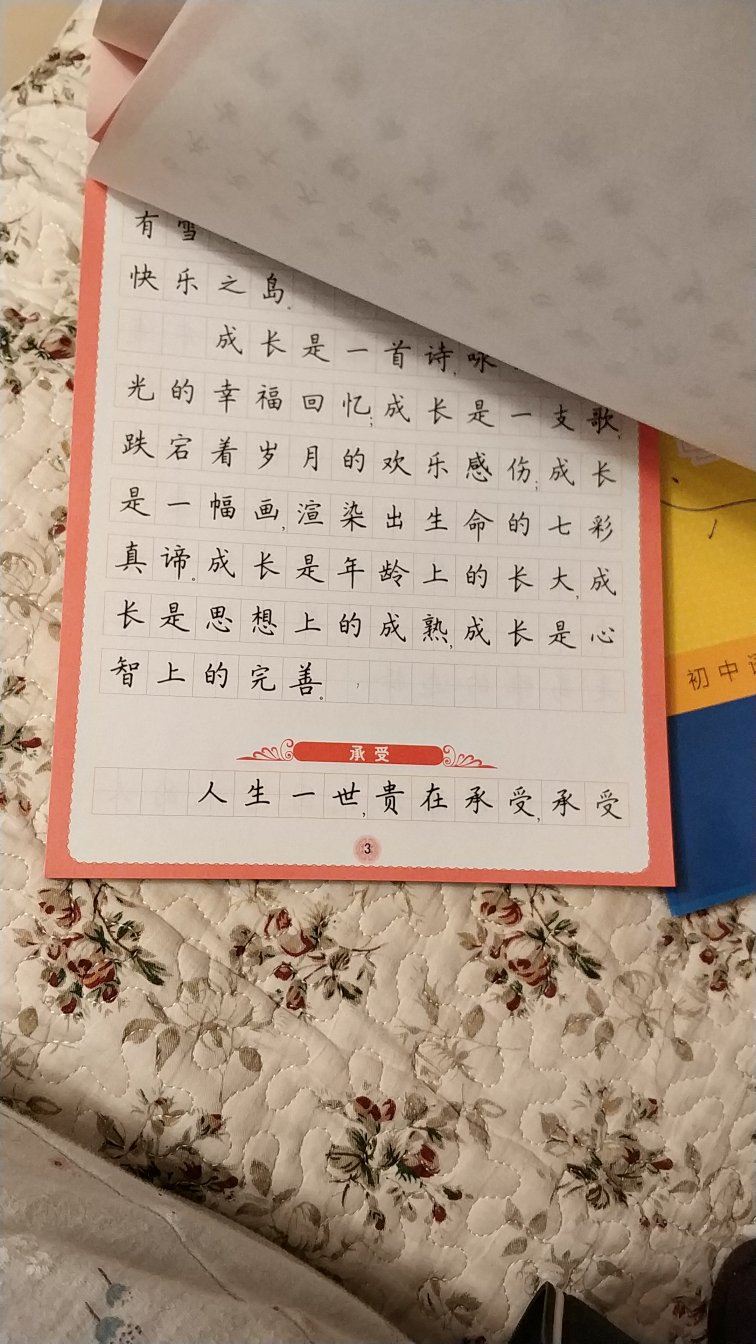 有雪
快乐之岛。
成长是一首诗,咏
光的幸福回忆;成长是一支歌,
跌宕着岁月的欢乐感伤;成长
是一幅画,渲染出生命的七彩
真谛。成长是年龄上的长大,成
长是思想上的成熟,成长是心
智上的完善。
承受
人生一世,贵在承受,承受
3
初中